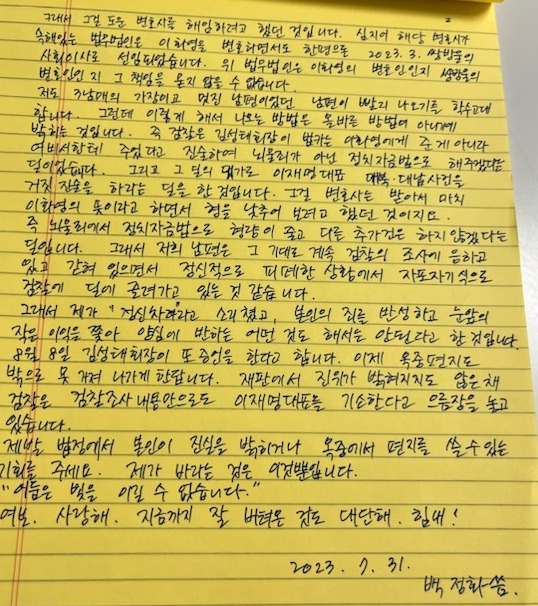 2
그래서 그걸 도운 변호사를 해임하려고 했던 것입니다. 심지어 해당 변호사가
속해있는 법무법인은 이화영을 변호하면서도 한편으로 2023. 3. 쌍방울의
사외이사로 선임되었습니다. 위 법무법인은 이화영의 변호인인지 쌍방울의
변호인인지 그 책임을 묻지 않을 수 없습니다.
저도 3남매의 가장이고 멋진 남편이었던 남편이 빨리 나오기를 학수고대
합니다. 그런데 이렇게 해서 나오는 방법은 올바른 방법이 아니기에
밝히는 것입니다. 즉 검찰은 김성태회장이 법카는 이화영에게 준 게 아니라
여비서한테 주었다고 진술하여 뇌물죄가 아닌 정치자금법으로 해주겠다는
딜이었습니다. 그리고 그 딜의 댓가로 이재명대표 대북·대납사건을
거짓 진술을 하라는 딜을 한 것입니다. 그걸 변호사는 받아서 마치
이화영의 뜻이라고 하면서 형을 낮추어 보려고 했던 것이지요.
즉 뇌물죄에서 정치자금법으로 형량이 줄고 다른 추가건은 하지 않겠다는
딜입니다. 그래서 저희 남편은 그 기대로 계속 검찰의 조사에 응하고
있고 갇혀 있으면서 정신적으로 피폐한 상황에서 자포자기식으로
검찰에 딜에 끌려가고 있는 것 같습니다.
그래서 제가 "정신차려라고 소리쳤고, 본인의 죄를 반성하고 눈앞의
작은 이익을 쫓아 양심에 반하는 어떤 것도 해서는 안된다고 한 것입니다.
8월 8일 김성태회장이 또 증언을 한다고 합니다. 이제 옥중편지도
밖으로 못 가져 나가게 한답니다. 재판에서 진위가 밝혀지지도 않은 채
검찰은 검찰조사 내용만으로도 이재명대표를 기소한다고 으름장을 놓고
있습니다.
제발 법정에서 본인이 진실을 밝히거나 옥중에서 편지를 쓸 수 있는
기회를 주세요. 제가 바라는 것은 이것뿐입니다.
"어둠은 빛을 이길 수 없습니다."
여보. 사랑해. 지금까지 잘 버텨온 것도 대단해. 힘내!
2023. 7. 31.
백 정화 씀.